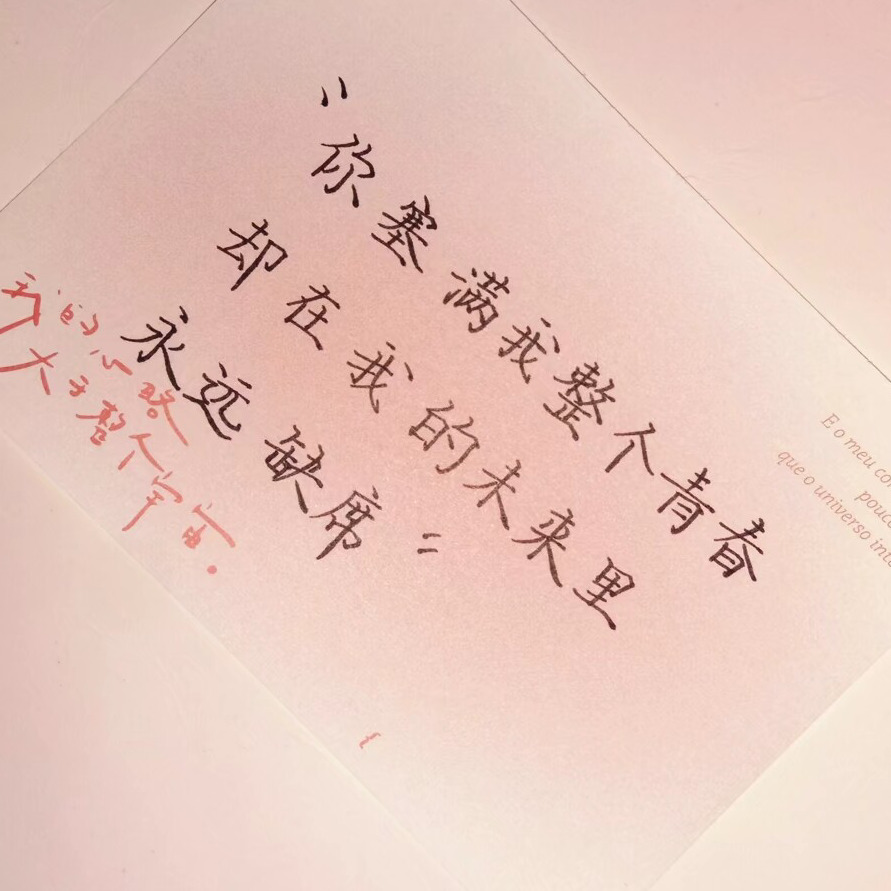 "你塞满我整个青春
却在我的未来里
永远缺席"
我的心略
大于整个宇宙.
E o meu co
pouc
que o universo inte